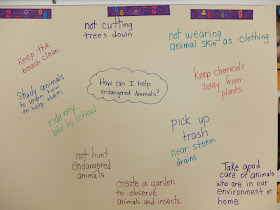 not cutting
trees down
not wearing
animal skin as clothing
Keep the
beach clean
Keep chemicals
away from
plants
How can I help
endangered animals?
Study animals
to learn how
to help them
ride my
bike to school
pick up
trash
near storm
drains
not hunt
endangered
animals
create a garden
to observe
animals and insects
Take good
care of animals
who are in our
environment or
home